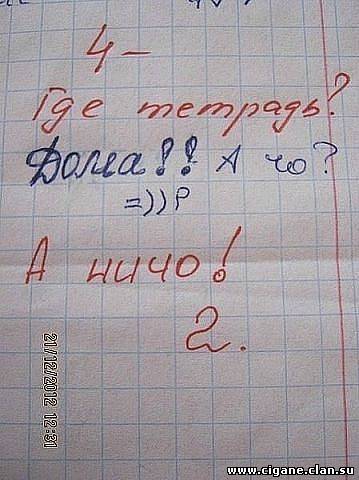 4-
Где тетрадь?
Дома!! А чо?
=))Р
А ничо!
2.
21/12/2012 12:31
www.cigane.clan.su